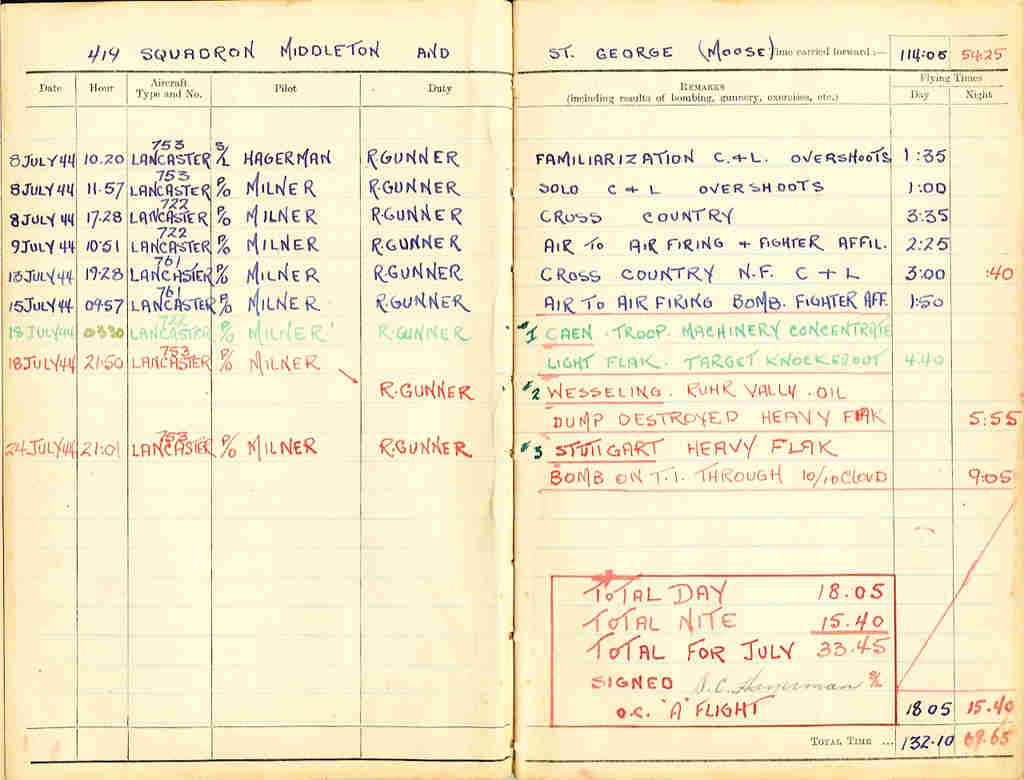 419 SQUADRON MIDDLETON AND ST. GEORGE (MOOSE) Time carried forward :— 114:05 54:25
Date Hour Aircraft Type and No. Pilot Duty REMARKS (including results of bombing, gunnery, exercises, etc.) Flying Times Day Night
8 JULY 44 10.20 LANCASTER 753 S/L HAGERMAN R.GUNNER FAMILIARIZATION C.+L. OVERSHOOTS 1:35
8 JULY 44 11.57 LANCASTER 753 P/O MILNER R.GUNNER SOLO C + L OVERSHOOTS 1:00
8 JULY 44 17.28 LANCASTER 722 P/O MILNER R.GUNNER CROSS COUNTRY 3:35
9 JULY 44 10:51 LANCASTER 722 P/O MILNER R.GUNNER AIR TO AIR FIRING + FIGHTER AFFIL. 2:25
13 JULY 44 19.28 LANCASTER 761 P/O MILNER R.GUNNER CROSS COUNTRY N.F. C + L 3:00 :40
15 JULY 44 09:57 LANCASTER 761 P/O MILNER R.GUNNER AIR TO AIR FIRING BOMB. FIGHTER AFF. 1:50
18 JULY 44 0330 LANCASTER P/O MILNER R.GUNNER #1 CAEN. TROOP. MACHINERY CONCENTRATE
LIGHT FLAK. TARGET KNOCKEDOUT 4.40
18 JULY 44 21:50 LANCASTER 753 P/O MILNER
R.GUNNER #2 WESSELING. RUHR VALLY. OIL
DUMP DESTROYED HEAVY FLAK 5:55
24 JULY 44 21:01 LANCASTER 753 P/O MILNER R.GUNNER #3 STUTTGART HEAVY FLAK
BOMB ON T.I. THROUGH 10/10 CLOUD 9:05
TOTAL DAY 18.05
TOTAL NITE 15.40
TOTAL FOR JULY 33.45
SIGNED D.C. Hagerman S/L
O.C. "A" FLIGHT 18 05 15.40
TOTAL TIME ... 132.10 69.65